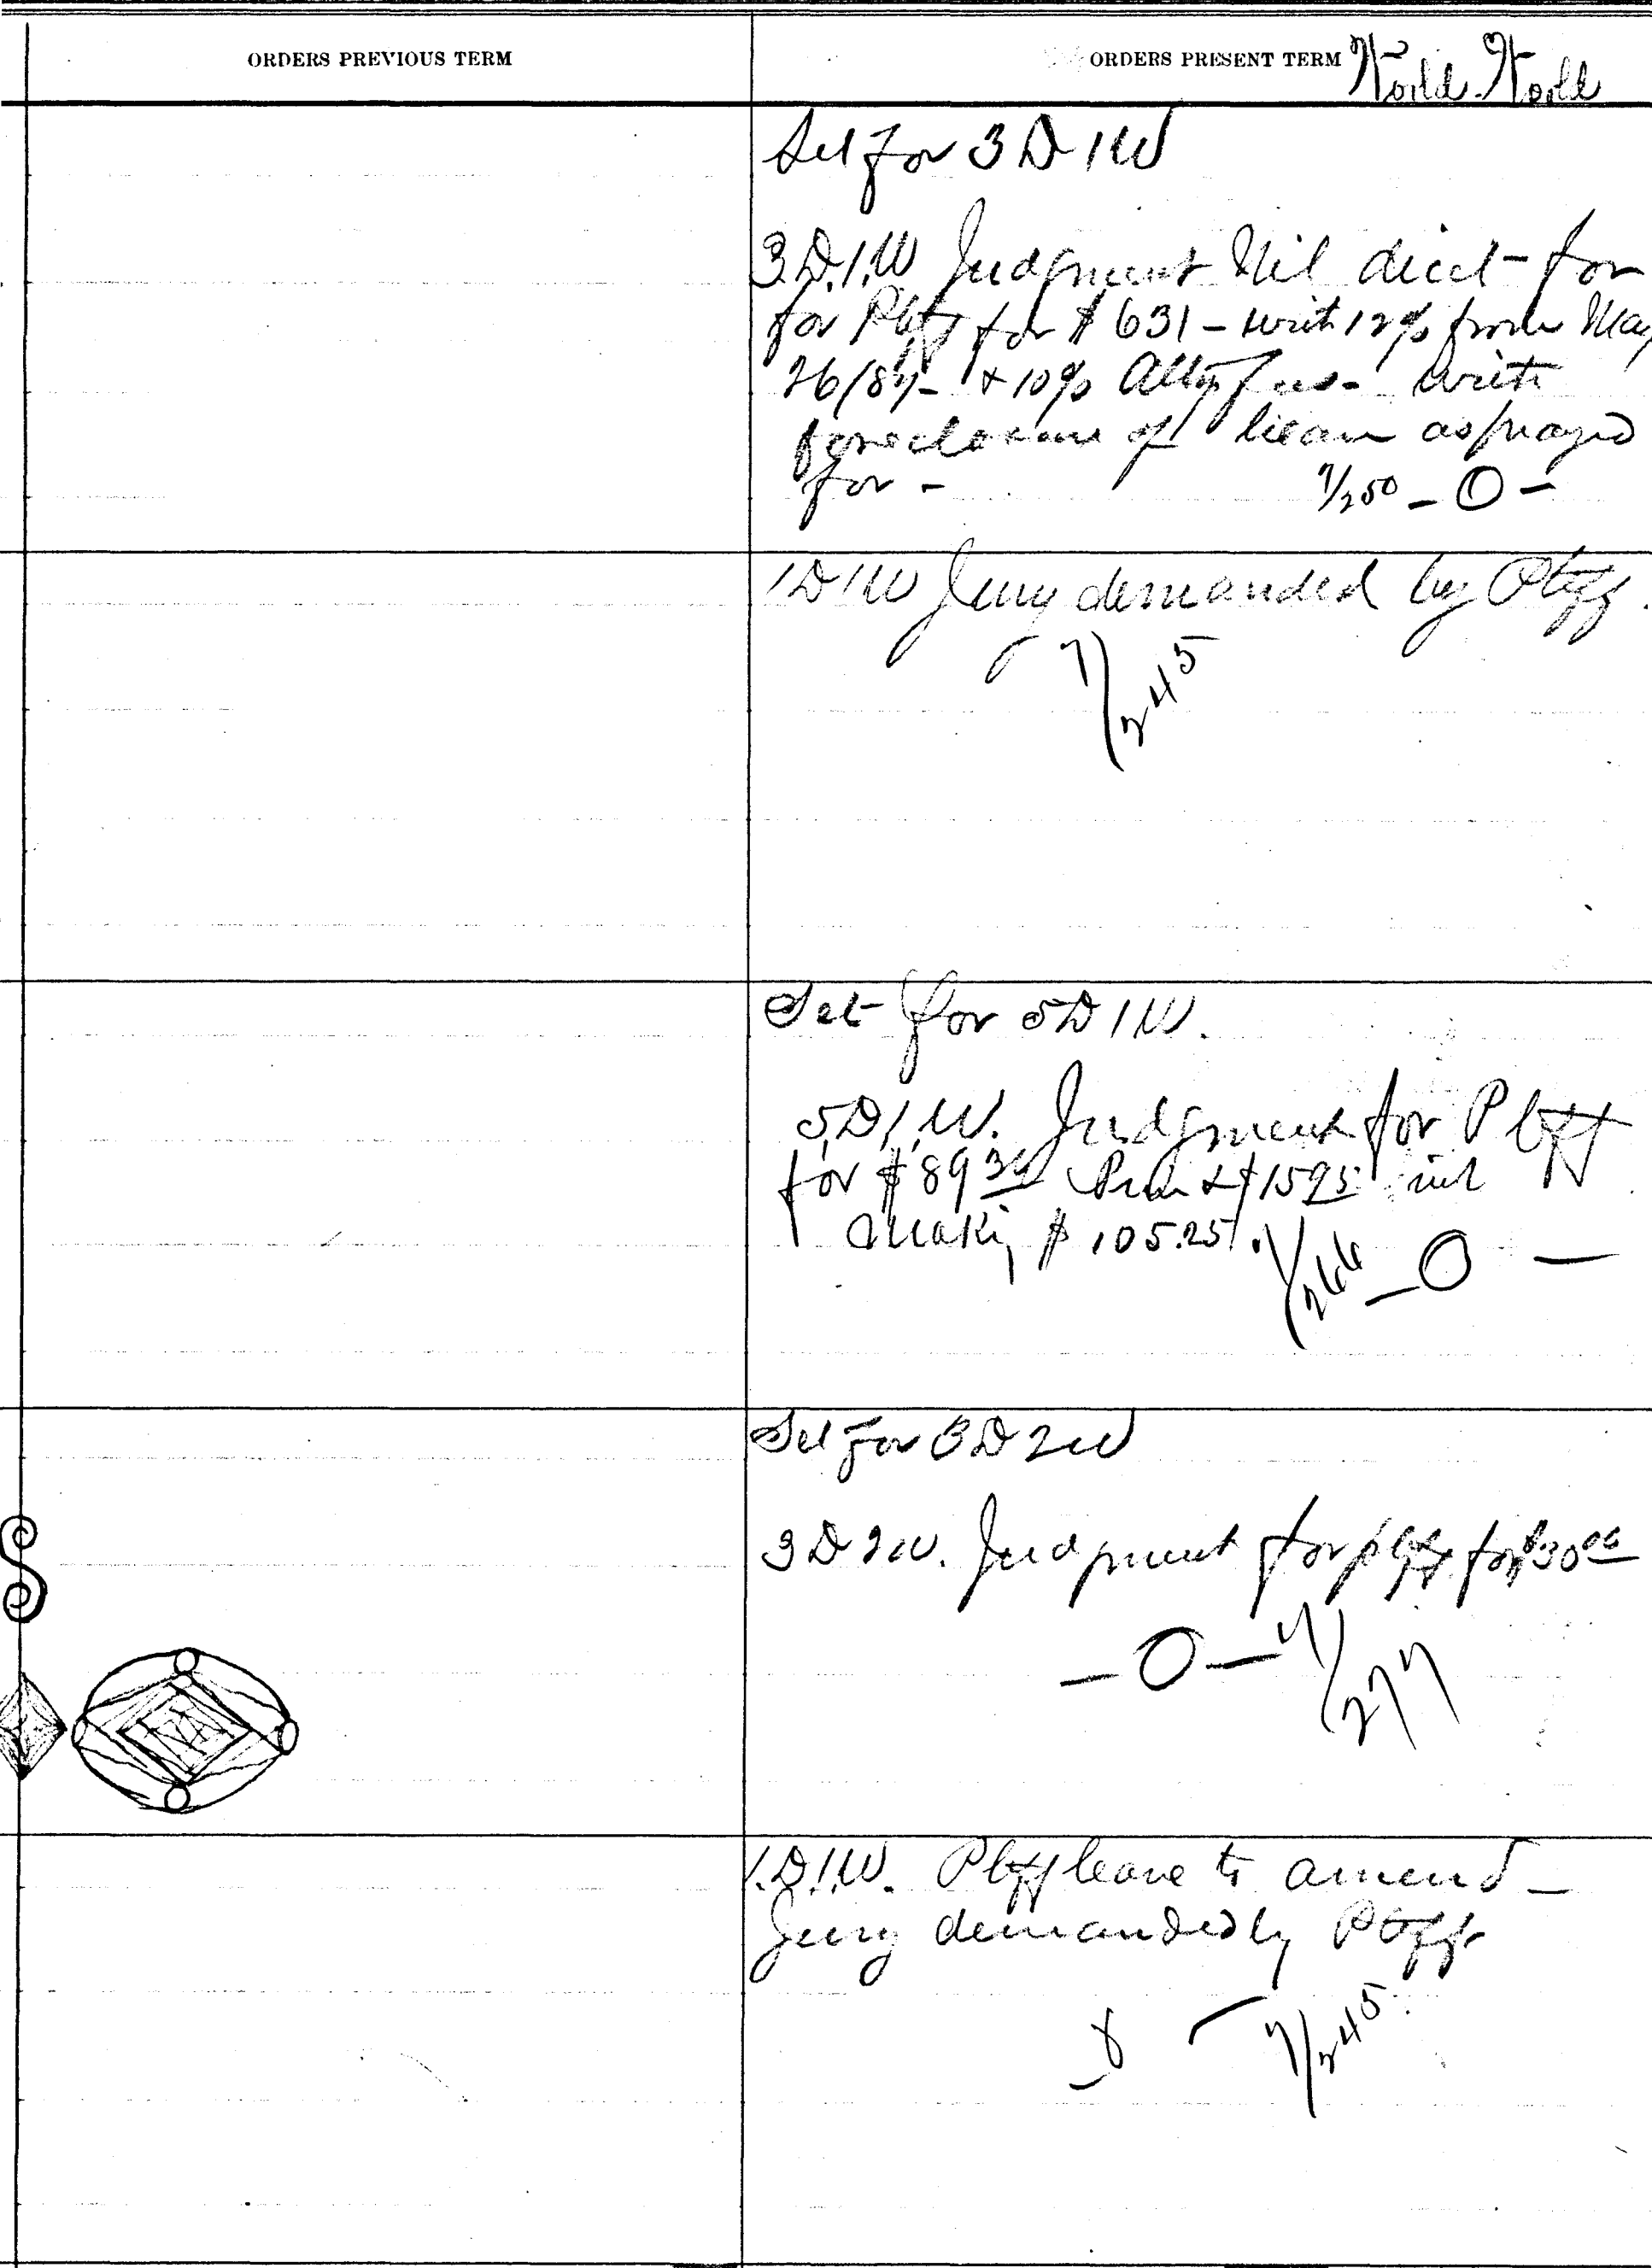 ORDERS PREVIOUS TERM
ORDERS PRESENT TERM
Set for 3 D 1 W
3.D.1.W Judgment Nil dicit - for
for Pltff for $ 631 - with 12% from May
26/87 - + 10% Attys fees - with
foreclosure of liean as prayed
for -
7/250 - O -
1 D 1 W Jury demanded by Pltff.
7/245
Set for 5 D 1 W.
5.D.1.W. Judgment for Pltff
for $ 89 30 Prin & $ 15 95 int
Making $ 105.25.
7/266 - O -
Set for 3 D 2 W
3 D 2 W. Judgment for pltff for $30 00
- O - 7/277
VA
1.D.1.W. Pltff leave to amend -
Jury demanded by Pltff
7/245.